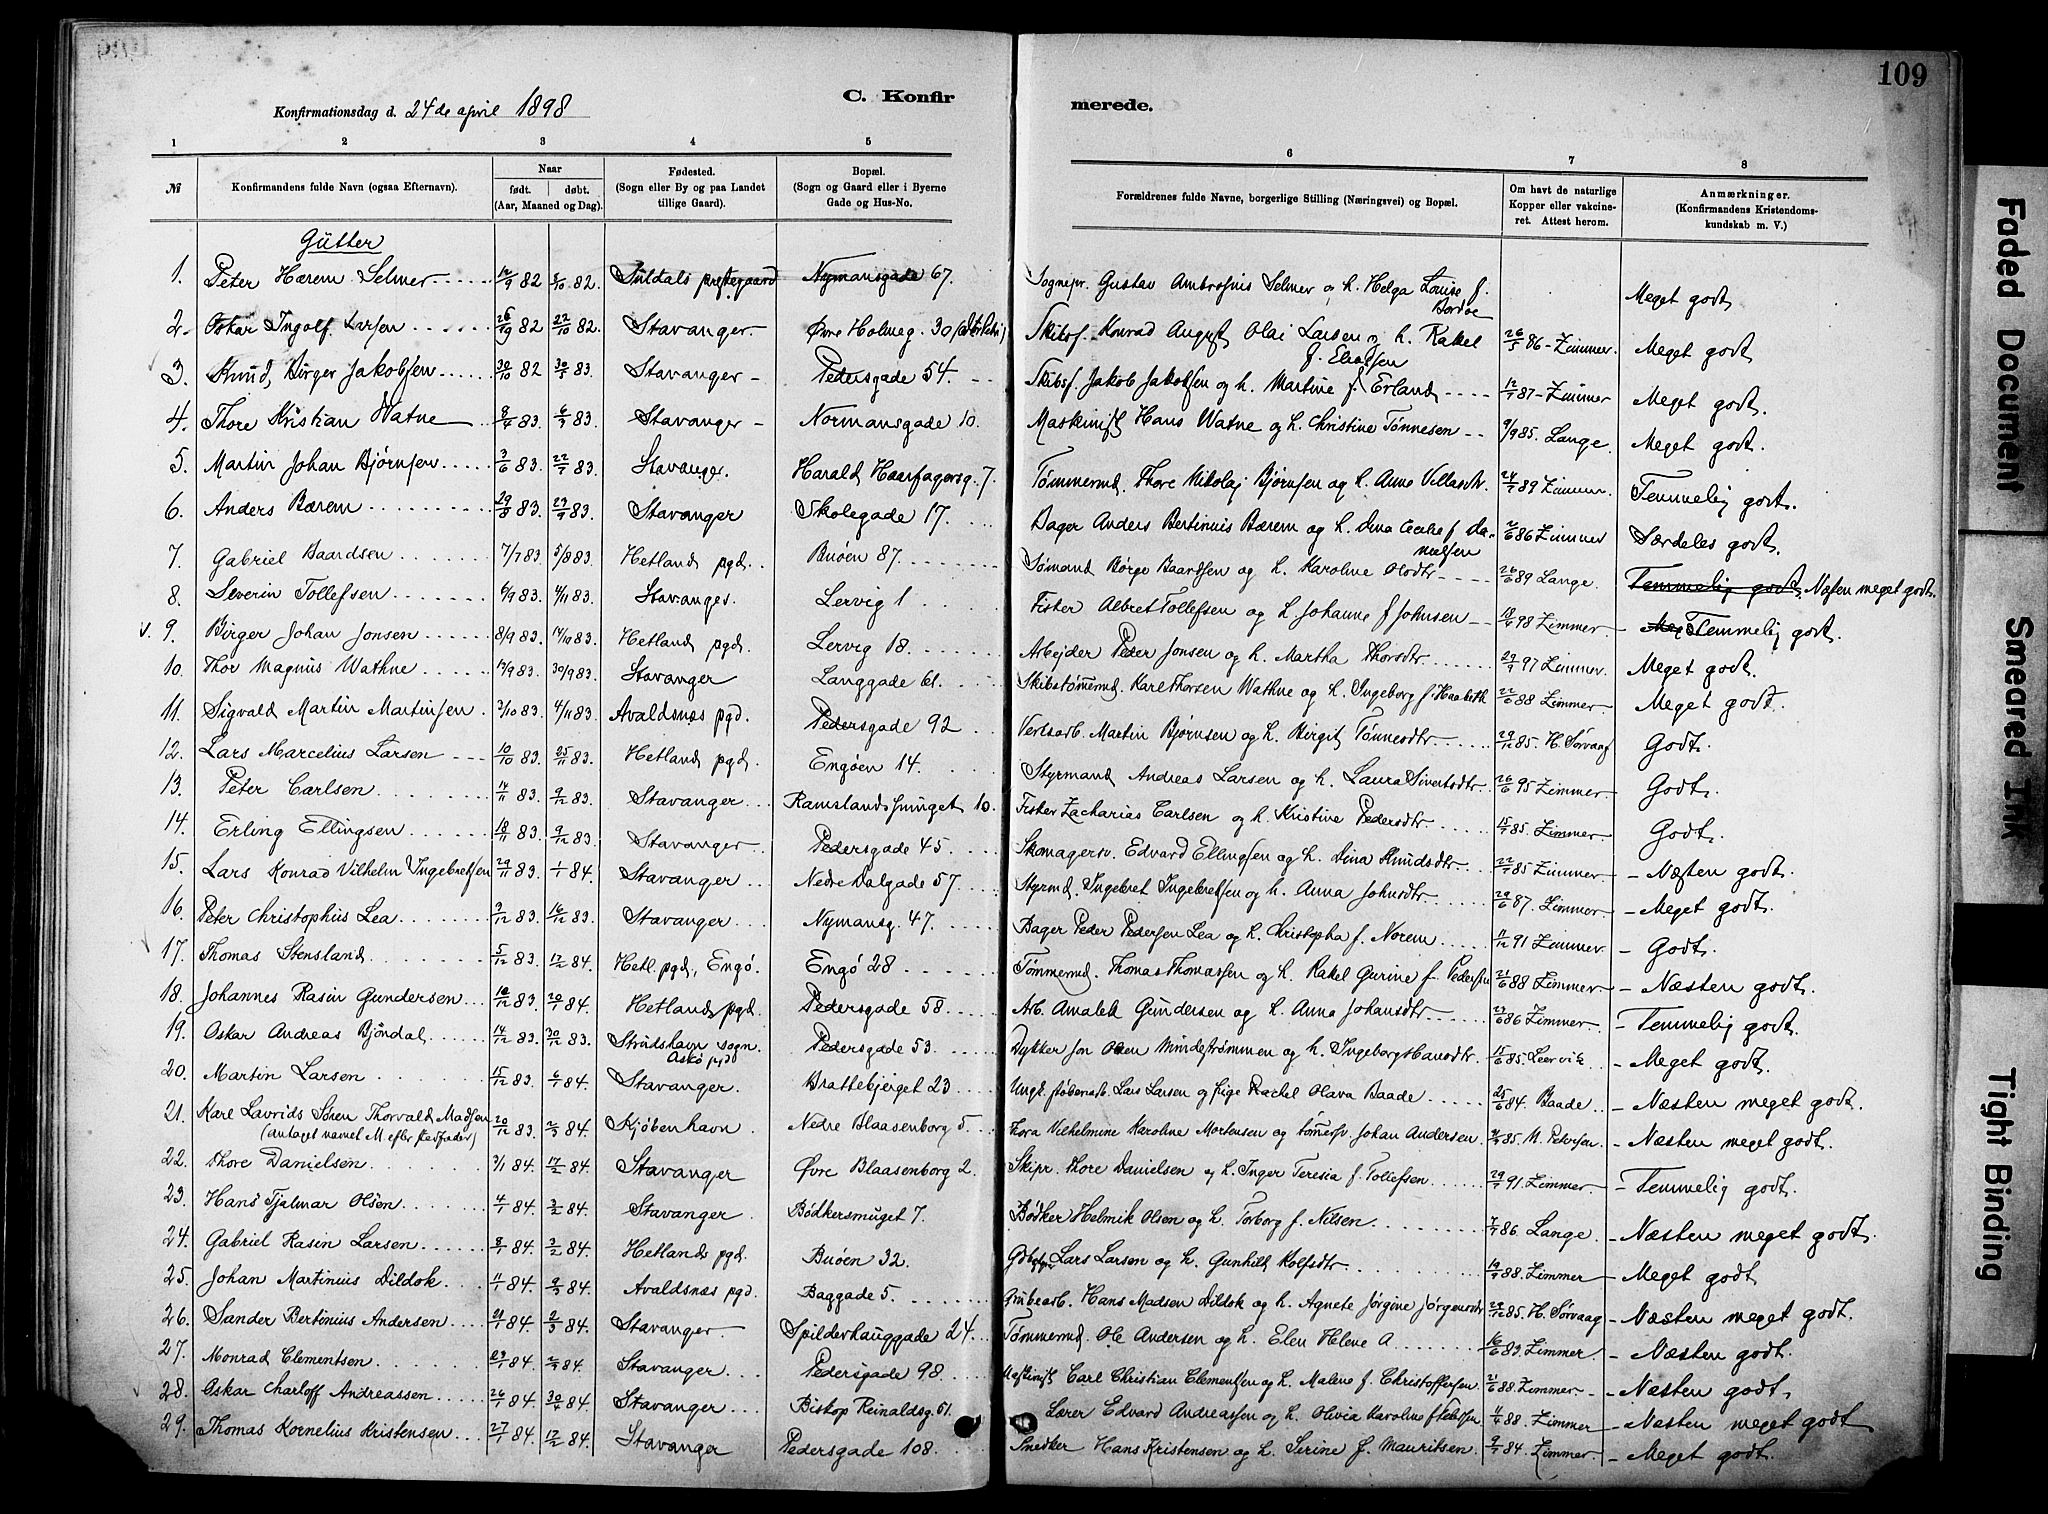 109
C. Konfir merede.
Konfirmationsdag d. 24de april 1898
1 2 3 4 5 6 7 8
№ Konfirmandens fulde Navn (ogsaa Efternavn). Naar født. døbt. (Aar, Maaned og Dag). Fødested. (Sogn eller By og paa Landet tillige Gaard). Bopæl. (Sogn og Gaard eller i Byerne Gade og Hus-No. Forældrenes fulde Navne, borgerlige Stilling (Næringsvei) og Bopæl. Om havt de naturlige Kopper eller vakcineret. Attest herom. Anmærkninger. (Konfirmandens Kristendomskundskab m. V.)
Gutter
1. Peter Hærem Selmer 82 82. Suldals prestegaard Nymansgade 67. Sognepr. Gustav Ambrosius Selmer og h. Helga Louise f. Meget godt
2. Oskar Ingolf Larsen 26/9 82 22/10 82. Stavanger Øvre Holmeg. 30 Skibsf. Konrad August Olai Larsen og h. Rakel f. 26/5 86 Zimmer. Meget godt
3. Knud Birger Jakobsen 30/10 82 83. Stavanger Pedersgade 54. Skibsf. Jakob Jakobsen og h. Martine f. Erland 87 Zimmer Meget godt.
4. Thore Kristian Watne 83. 83. Stavanger Normansgade 10. Maskinist Hans Watne og h. Christine Tønnesen 9/9 85. Lange. Meget godt.
5. Martin Johan Bjørnsen 3/6 83. 22/7 83. Stavanger. Harald Haarfagersg. 7. Tømmermd. Thore Nikolaj Bjørnsen og h. Anne Villasdtr. 89 Zimmer. Temmelig godt.
6. Anders Bærem 29/8 83. 23/9 83. Stavanger Skolegade 17. Bager Anders Bertinius Bærem og h. Dina Cecilie f. Danielsen 86 Zimmer Særdeles godt.
7. Gabriel Baardsen 7/7 83 5/8 83. Hetland pgd. Buøen 87. Sømand Børge Baardsen og h. Karoline Olsdtr 26/6 89 Lange. Temmelig godt. Næsten meget godt.
8. Severin Tollefsen 6/9 83. 4/11 83. Stavanger. Lervig 1 Fisker Albret Tollefsen og h. Johanne f. Johnsen 18/4 98 Zimmer. Temmelig godt.
v. 9. Birger Johan Jonsen 8/9 83. 14/10 83. Hetland pgd. Lervig 18. Arbejder Peder Jonsen og h. Martha Thorsdtr 29/9 97 Zimmer. Meget godt.
10. Thor Magnus Wathne 17/9 83. 30/9 83. Stavanger Langgade 61. Skibstømmermd. Karl Thorsen Wathne og h. Ingeborg f. 22/6 88 Zimmer. Meget godt.
11. Sigvald Martin Martinsen 3/10 83. 4/11 83. Avaldsnæs pgd. Pedersgade 92 Martin Bjørnsen og h. Birgit Tønnesdtr 29/12 85. H. Sørvaag Godt.
12. Lars Marcelius Larsen 10/10 83. 25/11 83. Hetland pgd. Engøen 14. Styrmand Andreas Larsen og h. Laura Sivertsdtr. 26/6 95 Zimmer. Godt.
13. Peter Carlsen 14/11 83. 9/12 83. Stavanger Ramslandssmuget 10. Fisker Zacharias Carlsen og h. Kristine Pedersdtr. 85. Zimmer. Godt.
14. Erling Ellingsen 18/11 83. 9/12 83. Stavanger Pedersgade 45. Skomagersv. Edvard Ellingsen og h. Dina Knudsdtr 85 Zimmer. Næsten godt.
15. Lars Konrad Vilhelm Ingebretsen 29/11 83. 1/1 84. Stavanger Nedre Dalgade 57. Styrmd. Ingebret Ingebretsen og h. Anna Johnsdtr 87. Zimmer. Meget godt.
16. Peter Christophus Lea 83. 16/12 83. Stavanger Nymansg. 47. Bager Peder Pedersen Lea og h. Christopha f. Norem 91 Zimmer. Godt.
17. Thomas Stensland 5/12 83. 17/2 84. Hetl. pgd., Engø. Engø 28 Tømmermd. Thomas Thomassen og h. Rakel Gurine f. Pedersen 21/6 88 Zimmer. Næsten godt.
18. Johannes Rasin Gundersen 83. 20/1 84. Hetland pgd. Pedersgade 58. Arb. Amalek Gundersen og h. Anna Johansdtr 86 Zimmer. Temmelig godt.
19. Oskar Andreas Bjøndal 14/12 83. 30/12 83. Strudshavn sogn. Askø pgd Pedersgade 53. Dykker Jon Olsen Mindestrømmen og h. Ingeborg Hansdtr. 15/6 85. Leervik Meget godt.
20. Martin Larsen 15/12 83. 6/1 84. Stavanger. Brattebjerget 23 Ungk. støberarb. Lars Larsen og pige Rachel Olava Baade 25/6 84. Baade Næsten meget godt.
21. Karl Lavrids Søren Thorvald Madsen 20/12 83. 84. Kjøbenhavn Nedre Blaasenborg 5. Thora Vilhelmine Karoline Mortensen og Johan Andersen. 85. M. Petersen. Næsten meget godt.
(Antaget navnet M. efter stedfader)
22. Thore Danielsen 3/1 84. 17/2 84. Stavanger Øvre Blaasenborg 2. Skipr. Thore Danielsen og h. Inger Teresia f. Tollefsen 91. Zimmer. Temmelig godt.
23. Hans Hjalmar Olsen 4/1 84. 3/2 84. Stavanger. Bødkersmuget 7. Bødker Helmik Olsen og h. Torborg f. Nilsen 86. Lange Næsten meget godt.
24. Gabriel Rasin Larsen 8/1 84. 3/2 84. Hetlands pgd. Buøen 32. Lars Larsen og h. Gunhild Rolfsdtr 88. Zimmer Meget godt
25. Johan Martinius Dildok 11/1 84. 9/3 84. Avaldsnæs pgd. Baggade 5. Grubearb. Hans Madsen Dildok og h. Agnete Jørgine Jørgensdtr 29/12 85. H. Sørvaag Næsten meget godt.
26. Sander Bertinius Andersen 21/1 84. 2/3 84. Stavanger Spilderhauggade 24. Tømmermd. Ole Andersen og h. Elen Helene A 16/6 89. Zimmer. Næsten godt.
27. Monrad Clementsen 23/1 84. 84. Stavanger Pedersgade 98. Maskinist Carl Christian Clementsen og h. Malene f. Christoffersen 21/6 88. Zimmer Næsten godt
28. Oskar Charloff Andreassen 26/1 84. 84. Stavanger Biskop Reinaldsg. 51. Lærer Edvard Andreassen og h. Olivia Karoline f. 88. Zimmer Næsten meget godt
29. Thomas Kornelius Kristensen 27/1 84. 17/2 84. Stavanger Pedersgade 108. Snedker Hans Kristensen og h. Serine f. Mauritsen 9/7 84. Zimmer. Meget godt.
Faded Document
Smeared Ink
Tight Binding